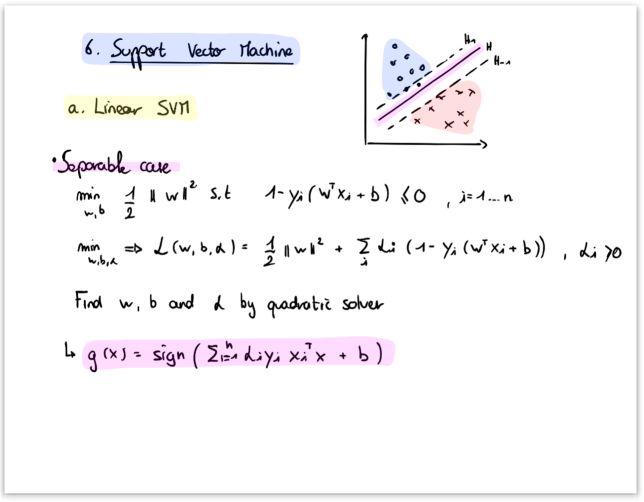 6. Support Vector Machine
H₁ H H₋₁
a. Linear SVM
• Separable case
min w,b 1/2 ‖w‖² s.t 1 - yᵢ(wᵀxᵢ + b) ≤ 0 , i = 1 ... n
min w,b,α ⇒ L(w, b, α) = 1/2 ‖w‖² + Σᵢ αᵢ (1 - yᵢ (wᵀxᵢ + b)) , αᵢ ≥ 0
Find w, b and α by quadratic solver
↳ g(x) = sign ( Σᵢ₌₁ⁿ αᵢ yᵢ xᵢᵀ x + b )